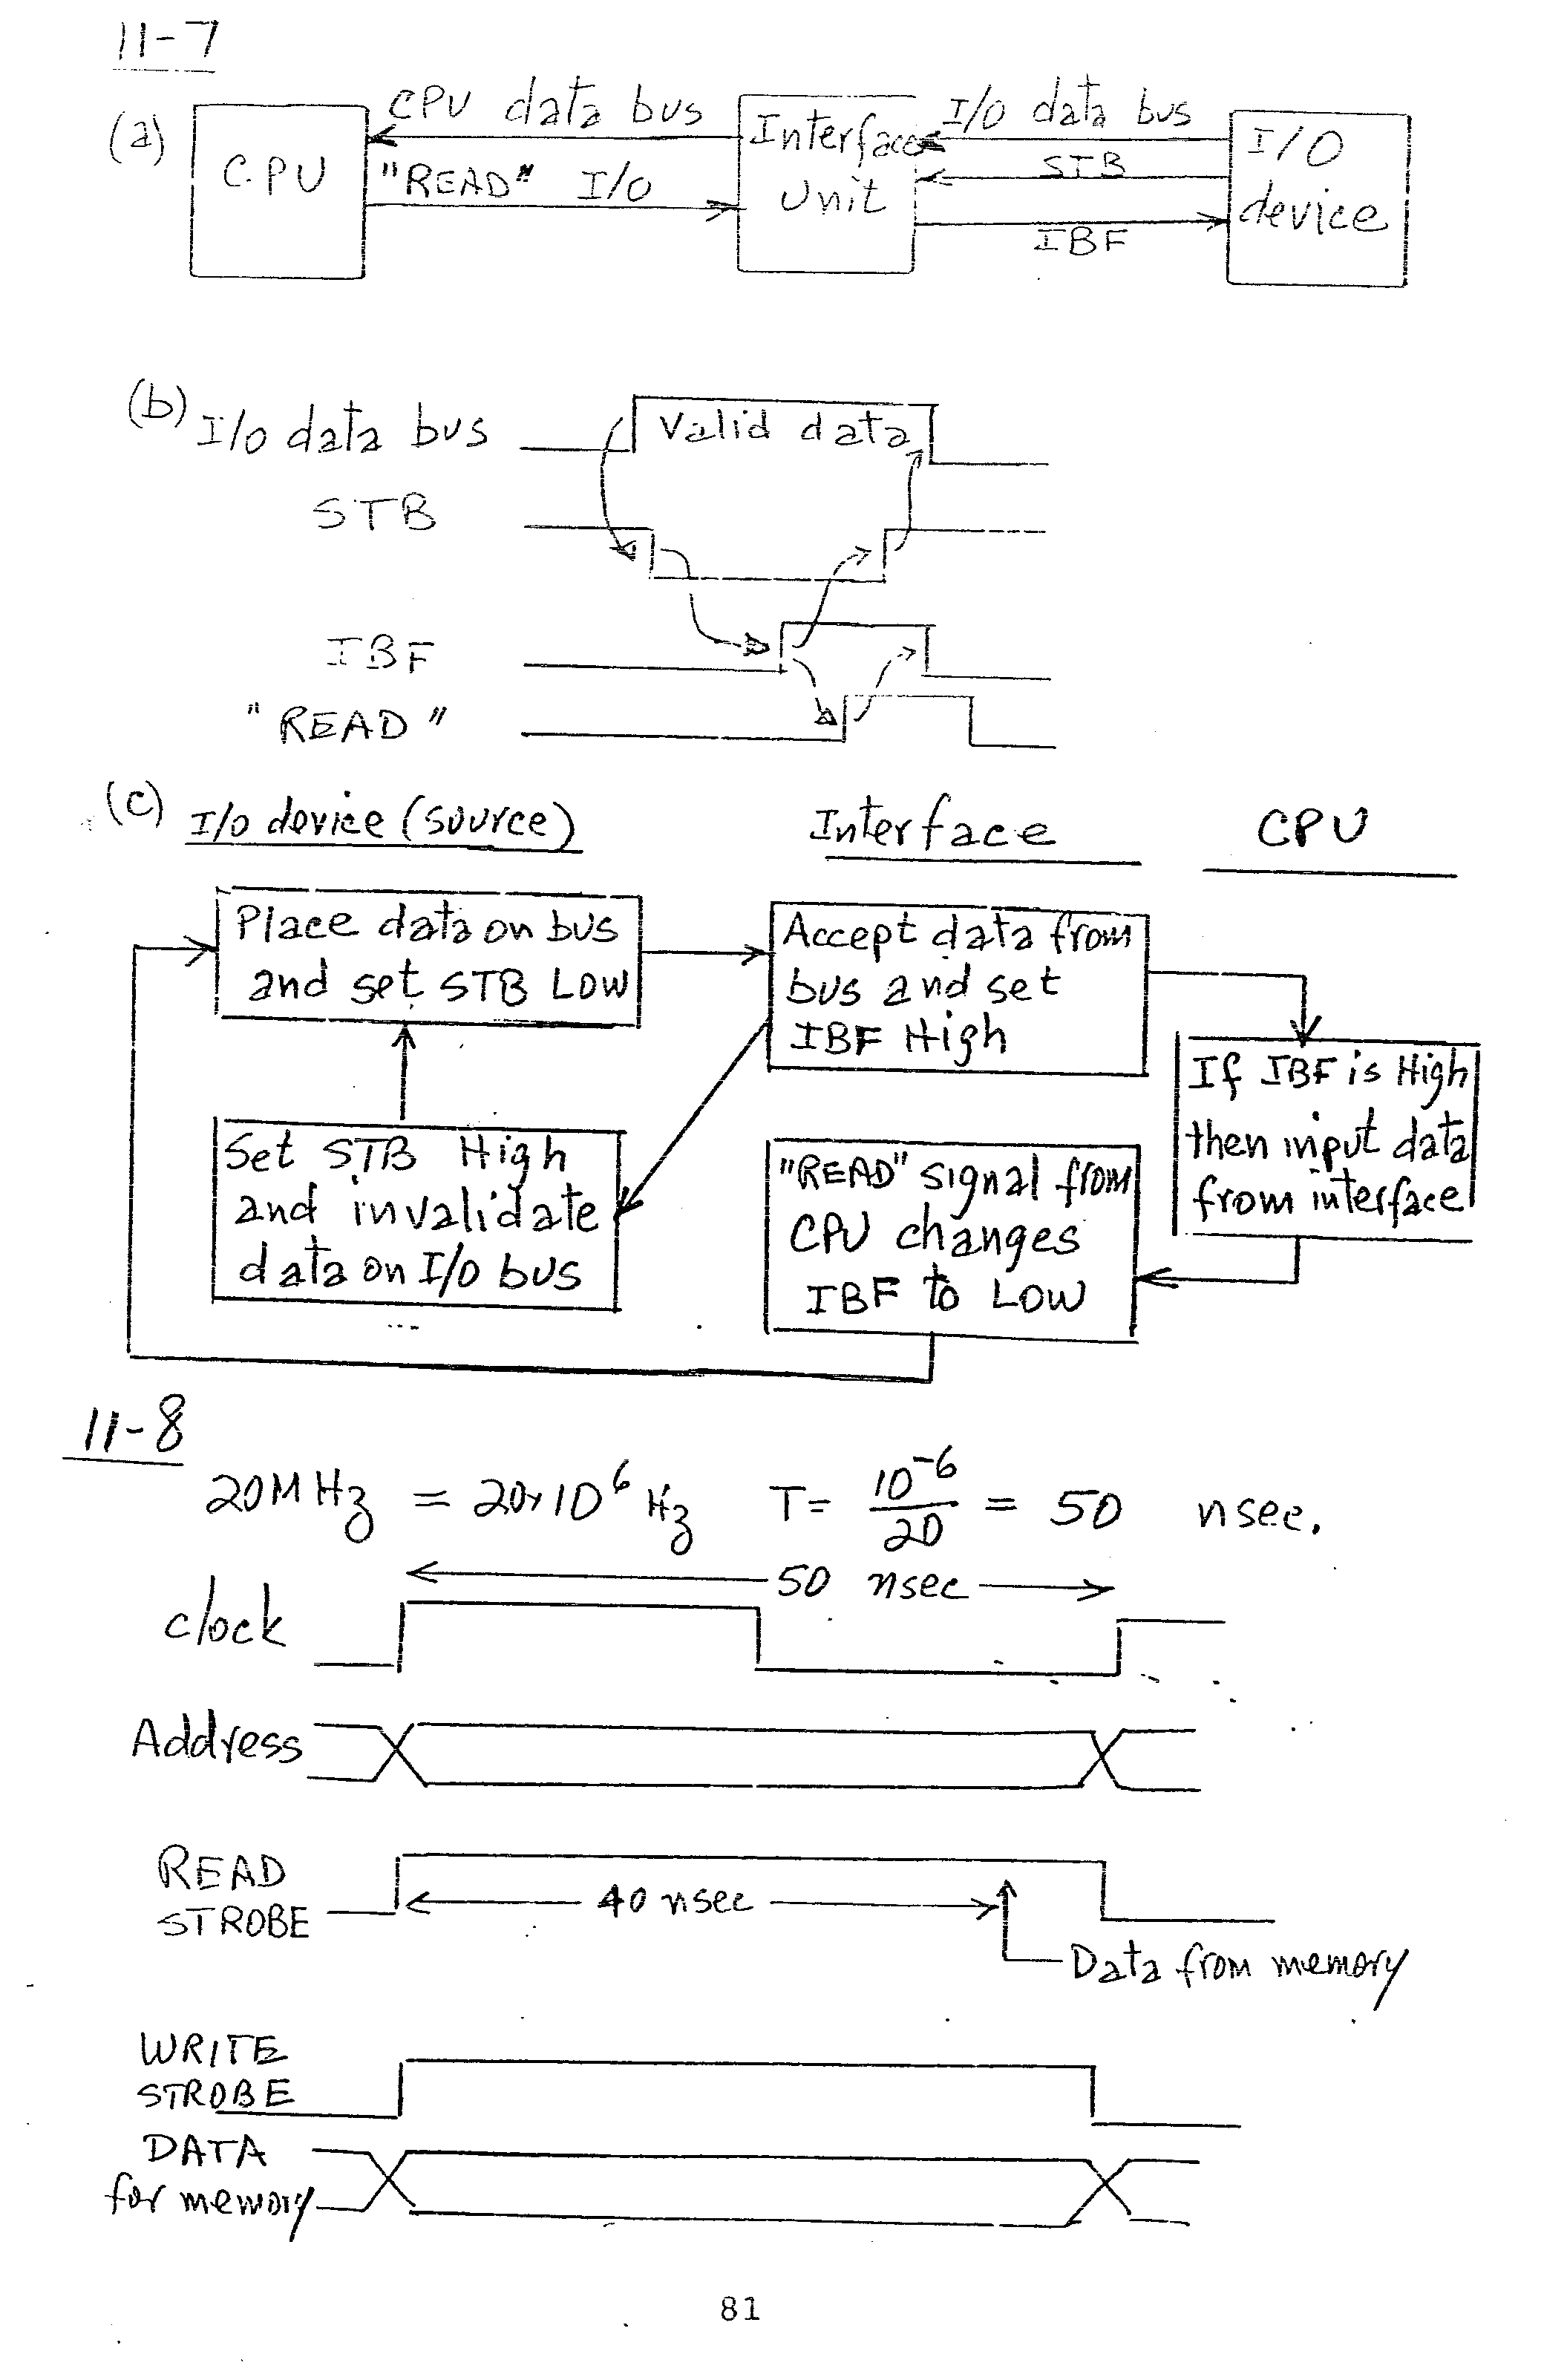 11-7
(a)
CPU
CPU data bus
"READ" I/O
Interface
Unit
I/O data bus
STB
IBF
I/O
device
(b)
I/O data bus
Valid data
STB
IBF
"READ"
(c) I/O device (source)
Interface
CPU
Place data on bus
and set STB Low
Accept data from
bus and set
IBF High
If IBF is High
then input data
from interface
Set STB High
and invalidate
data on I/O bus
"READ" signal from
CPU changes
IBF to Low
11-8
20MHz = 20×10⁶ Hz T = 10⁻⁶/20 = 50 nsec.
50 nsec
clock
Address
READ
STROBE
40 nsec
Data from memory
WRITE
STROBE
DATA
for memory
81